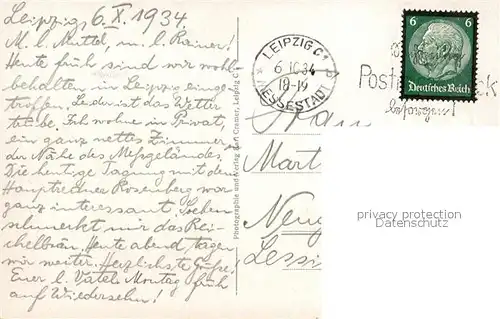 Leipzig, 6.X.1934
M. l. Muttel, m. l. Rainer!
Heute früh sind wir wohl-
behalten in Leipzig einge-
troffen. Leider ist das Wetter
trübe. Ich wohne in Privat,
ein ganz nettes Zimmer,
der Nähe des Meßgeländes.
Die heutige Tagung mit dem
Hauptredner Rosenberg war
ganz interessant. Soeben
schmeckt mir das Rei-
chelbräu. Heute abend tagen
wir weiter. Herzlichste Grüße
Euer l. Vatel. Montag früh
auf Wiedersehn!
Photographie und Verlag Rolf Cramer, Leipzig C1
LEIPZIG C1
6.10.34
18-19
MESSESTADT
Post
6 6
Deutsches Reich
Mart
Neu
Lessi
privacy protection
Datenschutz